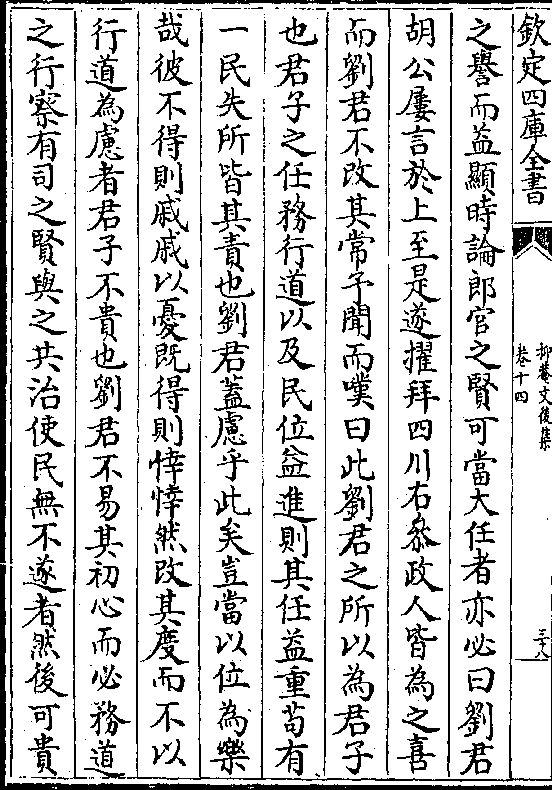 欽定四庫全書
抑菴文後集
卷十四
三十八
之譽而益顯時論郎官之賢可當大任者亦必曰劉君
胡公屢言於上至是遂擢拜四川右叅政人皆為之喜
而劉君不改其常予聞而嘆曰此劉君之所以為君子
也君子之任務行道以及民位益進則其任益重茍有
一民失所皆其責也劉君蓋慮乎此矣豈當以位為樂
哉彼不得則戚戚以憂既得則悻悻然改其度而不以
行道為慮者君子不貴也劉君不易其初心而必務道
之行察有司之賢與之共治使民無不遂者然後可貴